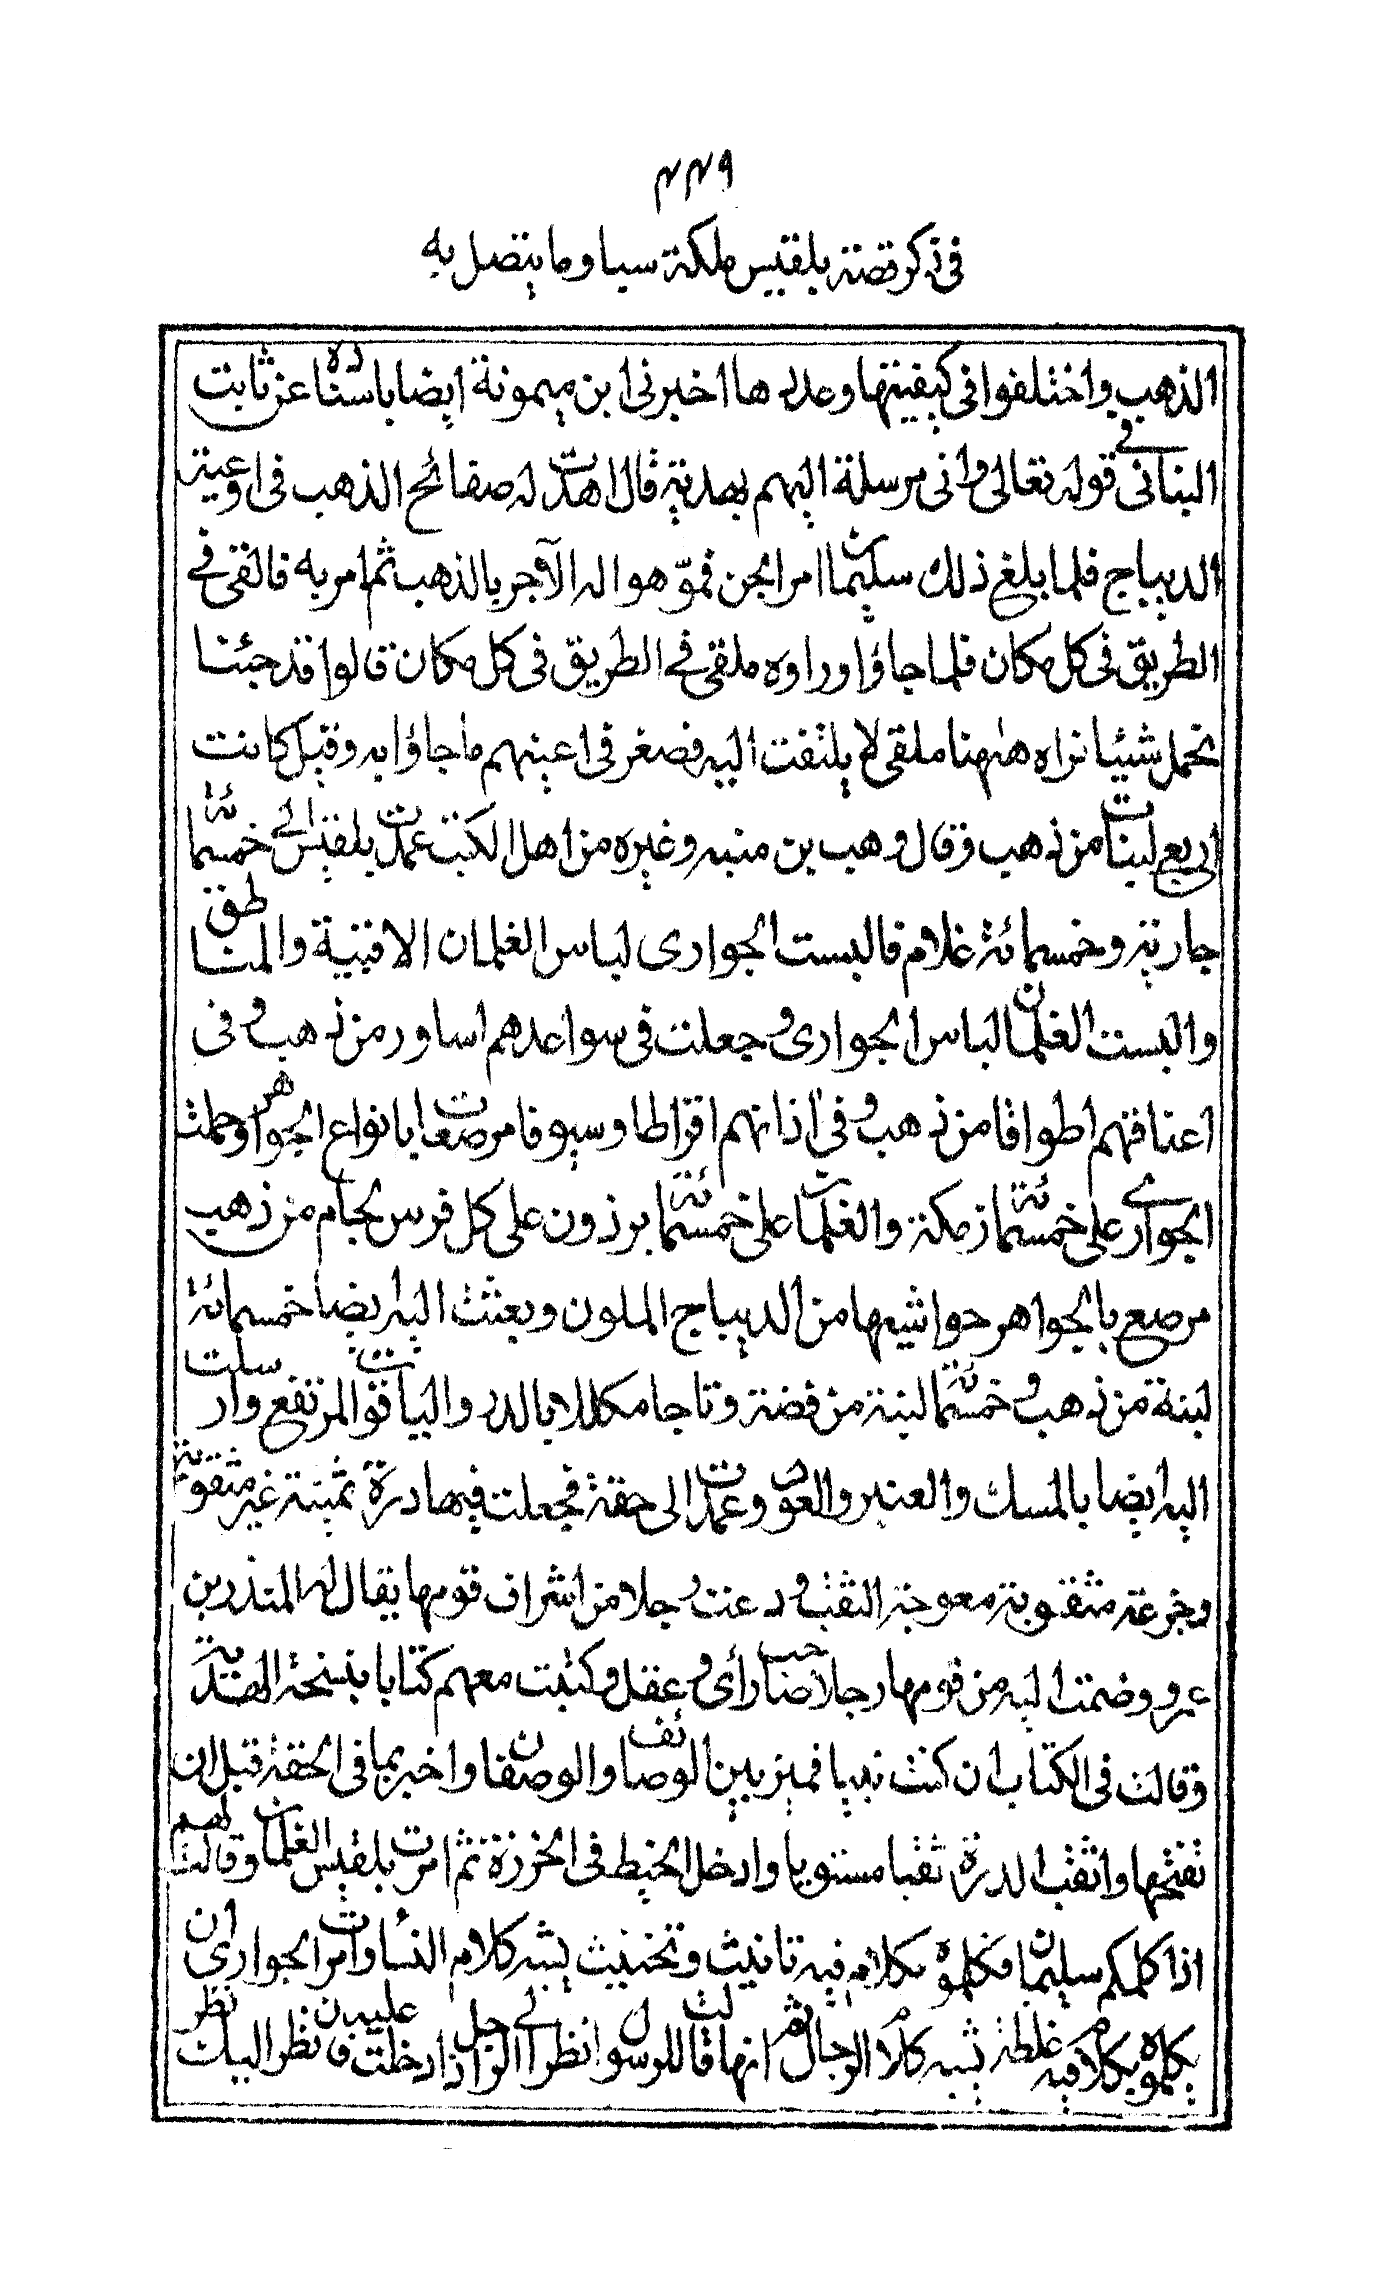 ٤٤٩
في ذكر قصة بلقيس ملكة سبا وما يتصل به
الذهب واختلفوا في كيفيتها وعددها اخبرني ابن ميمونة ايضا باسناده عن ثابت
البناني في قوله تعالى واني مرسلة اليهم بهدية قال اهدت له صفائح الذهب في اوعية
الديباج فلما بلغ ذلك سليمان امر الجن فموّهوا له الآجر بالذهب ثم امر به فالقى في
الطريق في كل مكان فلما جاؤا وراوه ملقى في الطريق في كل مكان قالوا قد جئنا
نحمل شيئا نراه هٰهنا ملقى لا يلتفت اليه فصغر في اعينهم ما جاؤا به وقيل كانت
اربع لبنات من ذهب وقال وهب بن منبه وغيره من اهل الكتب عمدت بلقيس الى خمسمائة
جارية وخمسمائة غلام فالبست الجوارى لباس الغلمان الاقبية والمناطق
والبست الغلمان لباس الجوارى وجعلت في سواعدهم اساور من ذهب وفي
اعناقهم اطواقا من ذهب وفي اذانهم اقراطا وسيوفا مرصعات بانواع الجواهر وحملت
الجوارى على خمسمائة رمكة والغلمان على خمسمائة برذون على كل فرس لجام من ذهب
مرصع بالجواهر حواشيها من الديباج الملون وبعثت اليه ايضا خمسمائة
لبنة من ذهب وخمسمائة لبنة من فضة وتاجا مكللا بالدر والياقوت المرتفع وارسلت
اليه ايضا بالمسك والعنبر والعود وعمدت الى حقة فجعلت فيها درة ثمينة غير مثقوبة
وخرعة مثقوبة معوجة الثقب ودعت رجلا من اشراف قومها يقال له المنذر بن
عمرو وضمت اليه من قومها رجلا اصحاب رأى وعقل وكتبت معهم كتابا بنسخة الهدية
وقالت في الكتاب ان كنت نبيا فميز بين الوصائف والوصفان واخبر بما في الحقة قبل ان
تفتحها واثقب الدرة ثقبا مستويا وادخل الخيط في الخرزة ثم امرت بلقيس الغلمان وقالت لهم
اذا كلمكم سليمان فكلموه بكلام فيه تانيث وتخنيث يشبه كلام النساء وامرت الجوارى ان
يكلموه بكلام فيه غلظة يشبه كلام الرجال ثم انها قالت للرسول انظر الى الرجل اذا دخلت عليه فان نظر اليك نظر